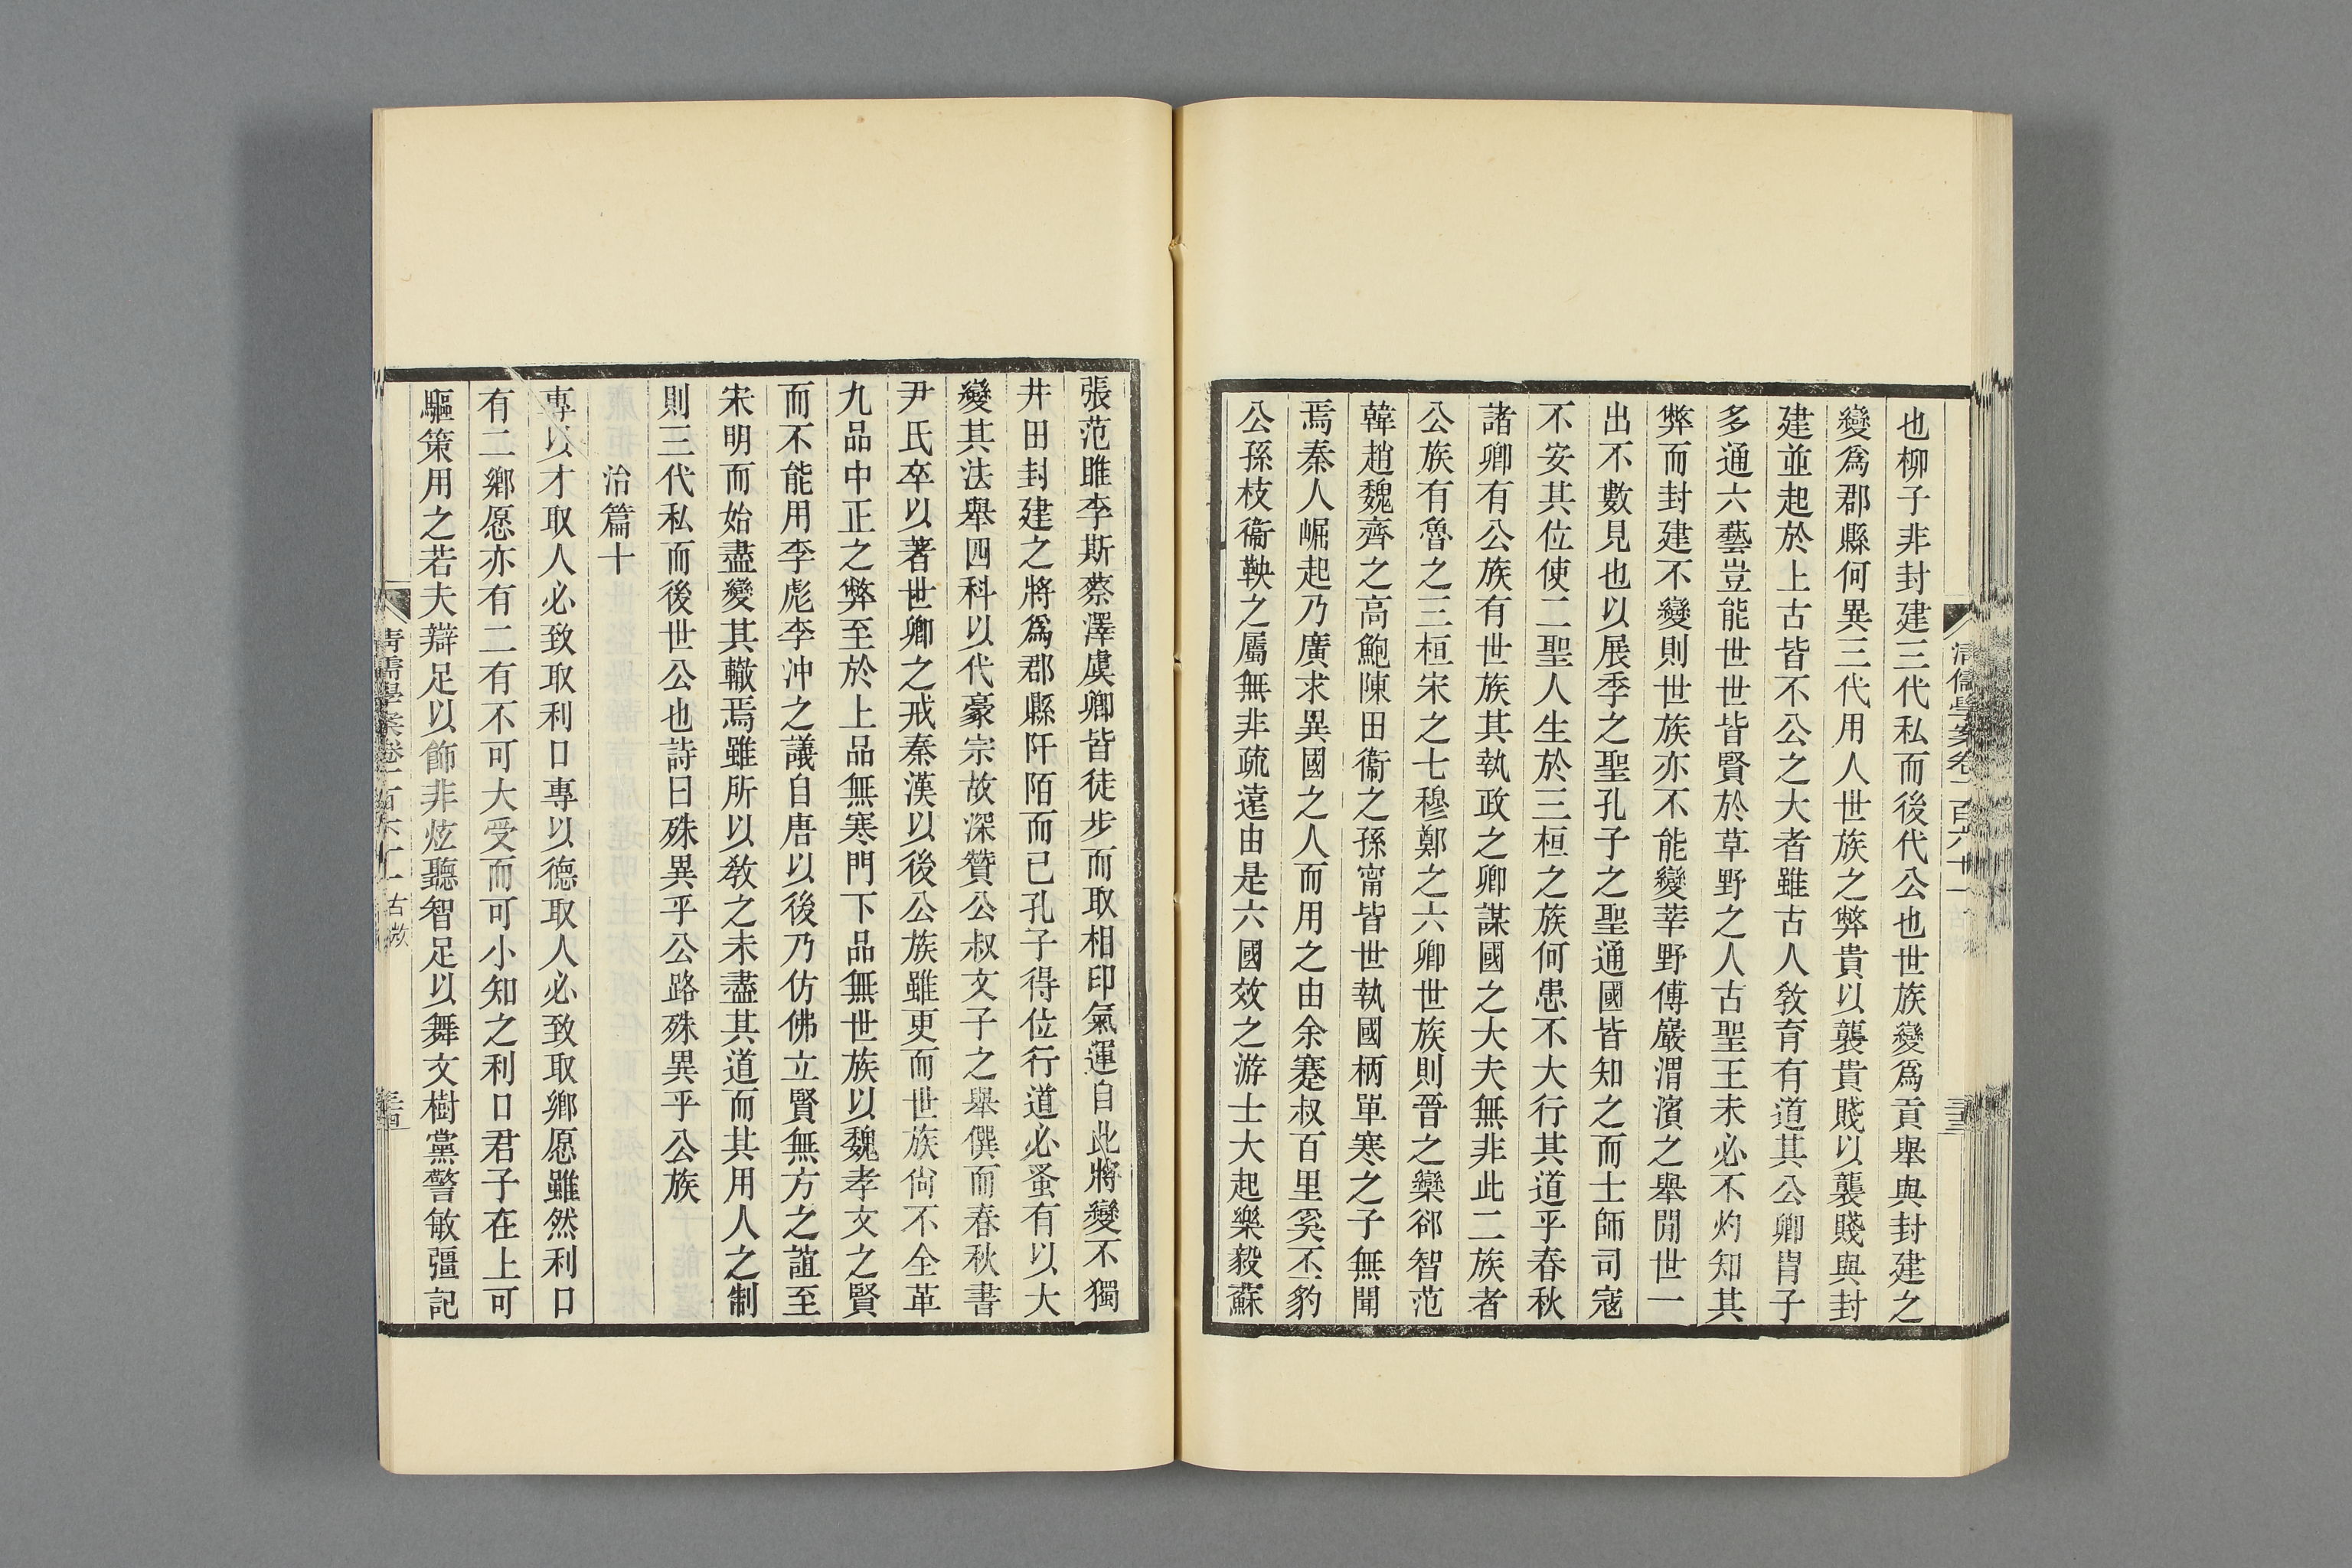 也柳子非封建三代私而後代公也世族變爲貢舉與封建之
變爲郡縣何異三代用人世族之弊貴以襲貴賤以襲賤與封
建並起於上古皆不公之大者雖古人敎育有道其公卿胄子
多通六藝豈能世世皆賢於草野之人古聖王未必不灼知其
弊而封建不變則世族亦不能變莘野傅巖渭濱之舉閒世一
出不數見也以展季之聖孔子之聖通國皆知之而士師司寇
不安其位使二聖人生於三桓之族何患不大行其道乎春秋
諸卿有公族有世族其執政之卿謀國之大夫無非此二族者
公族有魯之三桓宋之七穆鄭之六卿世族則晉之欒郤智范
韓趙魏齊之高鮑陳田衞之孫甯皆世執國柄單寒之子無聞
焉秦人崛起乃廣求異國之人而用之由余蹇叔百里奚丕豹
公孫枝衞鞅之屬無非疏遠由是六國效之游士大起樂毅蘇
張范雎李斯蔡澤虞卿皆徒步而取相印氣運自此將變不獨
井田封建之將爲郡縣阡陌而已孔子得位行道必蚤有以大
變其法舉四科以代豪宗故深贊公叔文子之舉僎而春秋書
尹氏卒以著世卿之戒秦漢以後公族雖更而世族尙不全革
九品中正之弊至於上品無寒門下品無世族以魏孝文之賢
而不能用李彪李沖之議自唐以後乃仿佛立賢無方之誼至
宋明而始盡變其轍焉雖所以敎之未盡其道而其用人之制
則三代私而後世公也詩曰殊異乎公路殊異乎公族
治篇十
專以才取人必致取利口專以德取人必致取鄉愿雖然利口
有二鄉愿亦有二有不可大受而可小知之利口君子在上可
驅策用之若夫辯足以飾非炫聽智足以舞文樹黨警敏彊記
清儒學案卷一百六十一
三十三
清儒學案卷一百六十一 古微
三十四